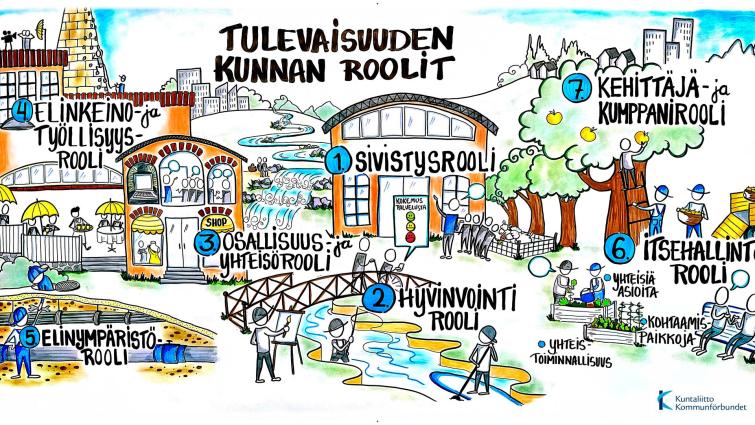 TULEVAISUUDEN
KUNNAN ROOLIT
4. ELINKEINO-ja
TYÖLLISYYS-
ROOLI
7. KEHITTÄJÄ-ja
KUMPPANIROOLI
1. SIVISTYSROOLI
KOKEMUS
PALVELUSTA
SHOP
3 OSALLISUUS-ja
YHTEISÖROOLI
2. HYVINVOINTI
ROOLI
6. ITSEHALLINTO
ROOLI
YHTEISIÄ
ASIOITA
KOHTAAMIS-
PAIKKOJA
YHTEIS-
TOIMINNALLISUUS
5 ELINYMPÄRISTÖ-
ROOLI
Kuntaliitto
Kommunförbundet